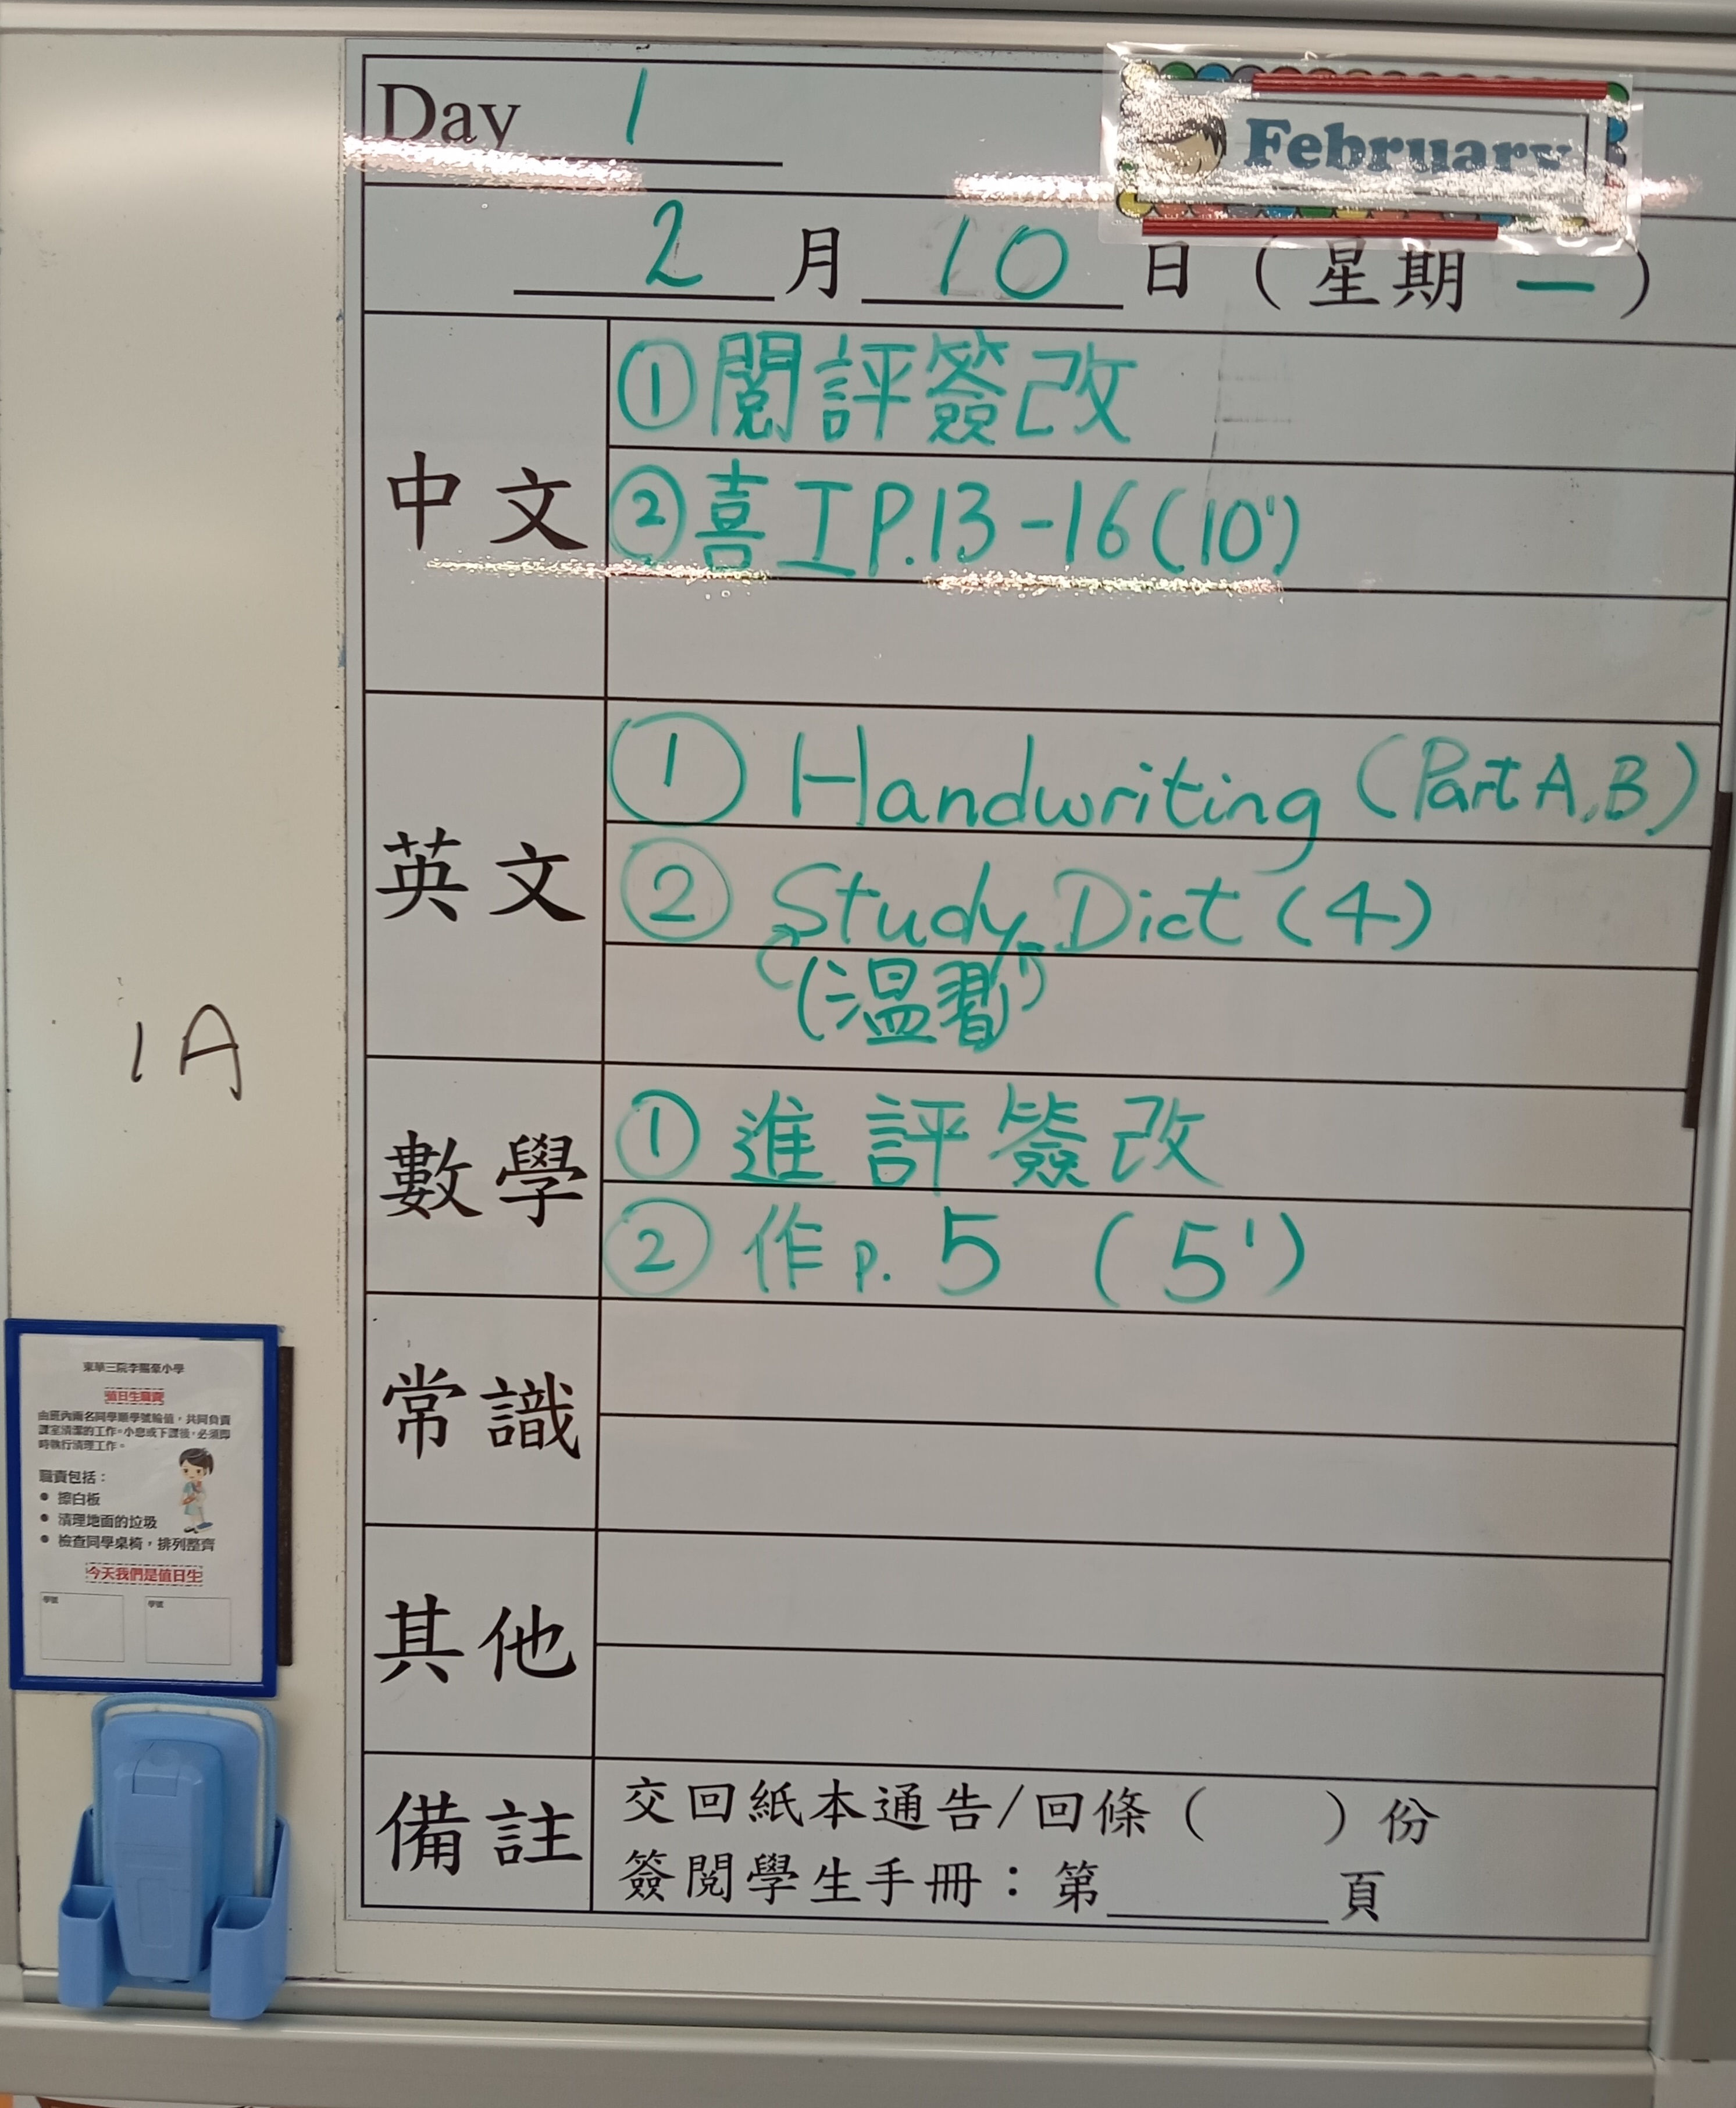 Day 1
February
2月10日(星期一)
中文
①閱評簽改
②喜工P.13-16(10')
英文
① Handwriting (Part A,B)
② Study Dict (4)
(温習)
數學
① 進評簽改
② 作p.5 (5')
常識
其他
備註
交回紙本通告/回條( )份
簽閱學生手冊：第______頁
1A
東華三院李賜豪小學
值日生職責
由班內兩名同學順學號輪值，共同負責
課室清潔的工作。小息或下課後，必須即
時執行清理工作。
職責包括：
● 擦白板
● 清理地面的垃圾
● 檢查同學桌椅，排列整齊
今天我們是值日生
學號 學號